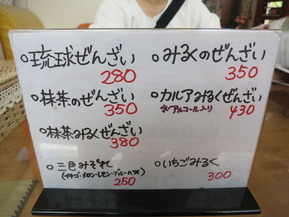 ○琉球ぜんざい
280
○抹茶のぜんざい
350
○抹茶みるくぜんざい
380
○三色みぞれ
250
○みるくのぜんざい
350
○カルアみるくぜんざい
※アルコール入り
430
○いちごみるく
300